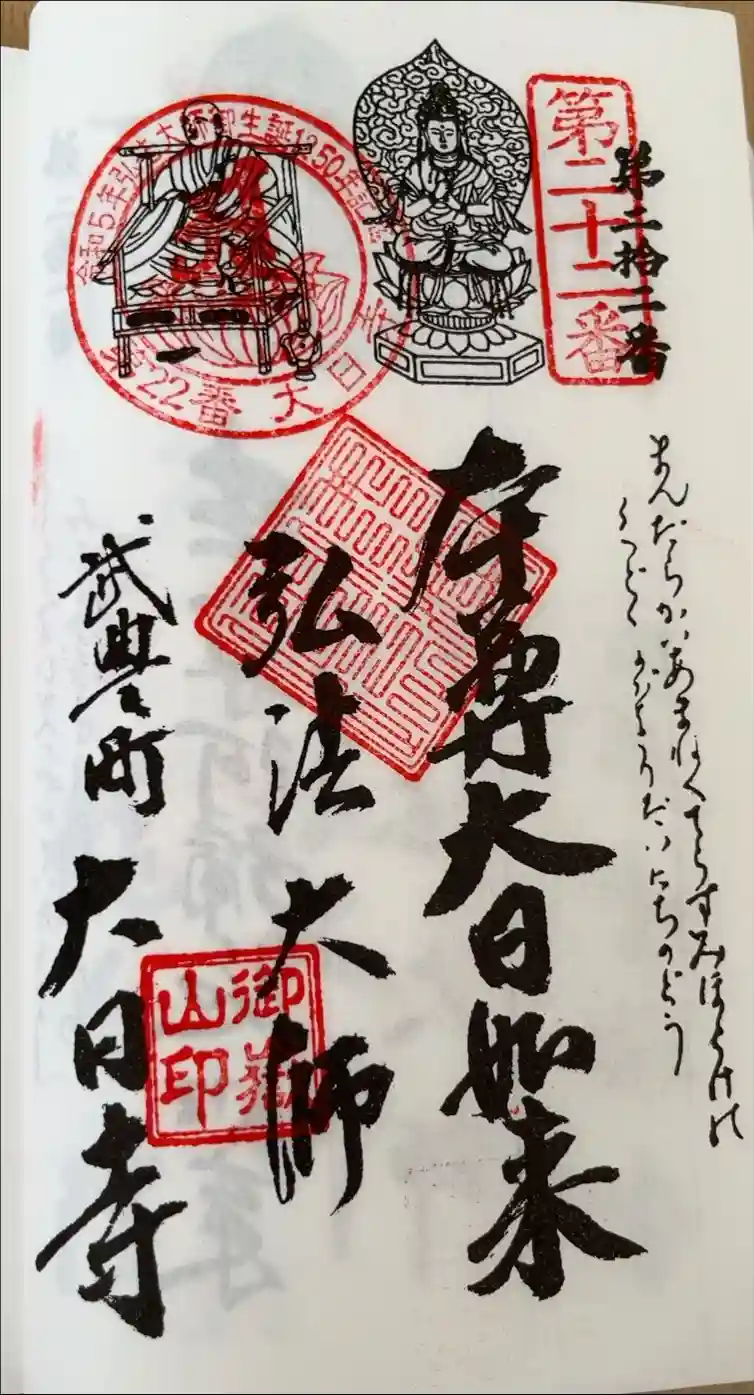 第二十二番
第二拾二番
令和5年弘法大師御生誕1250年記念
第22番大日寺
まんだらがいあまねくてらすみほとけの
がもりだいにちのどう
本尊大日如来
弘法大師
御嶽山印
武豊町大日寺